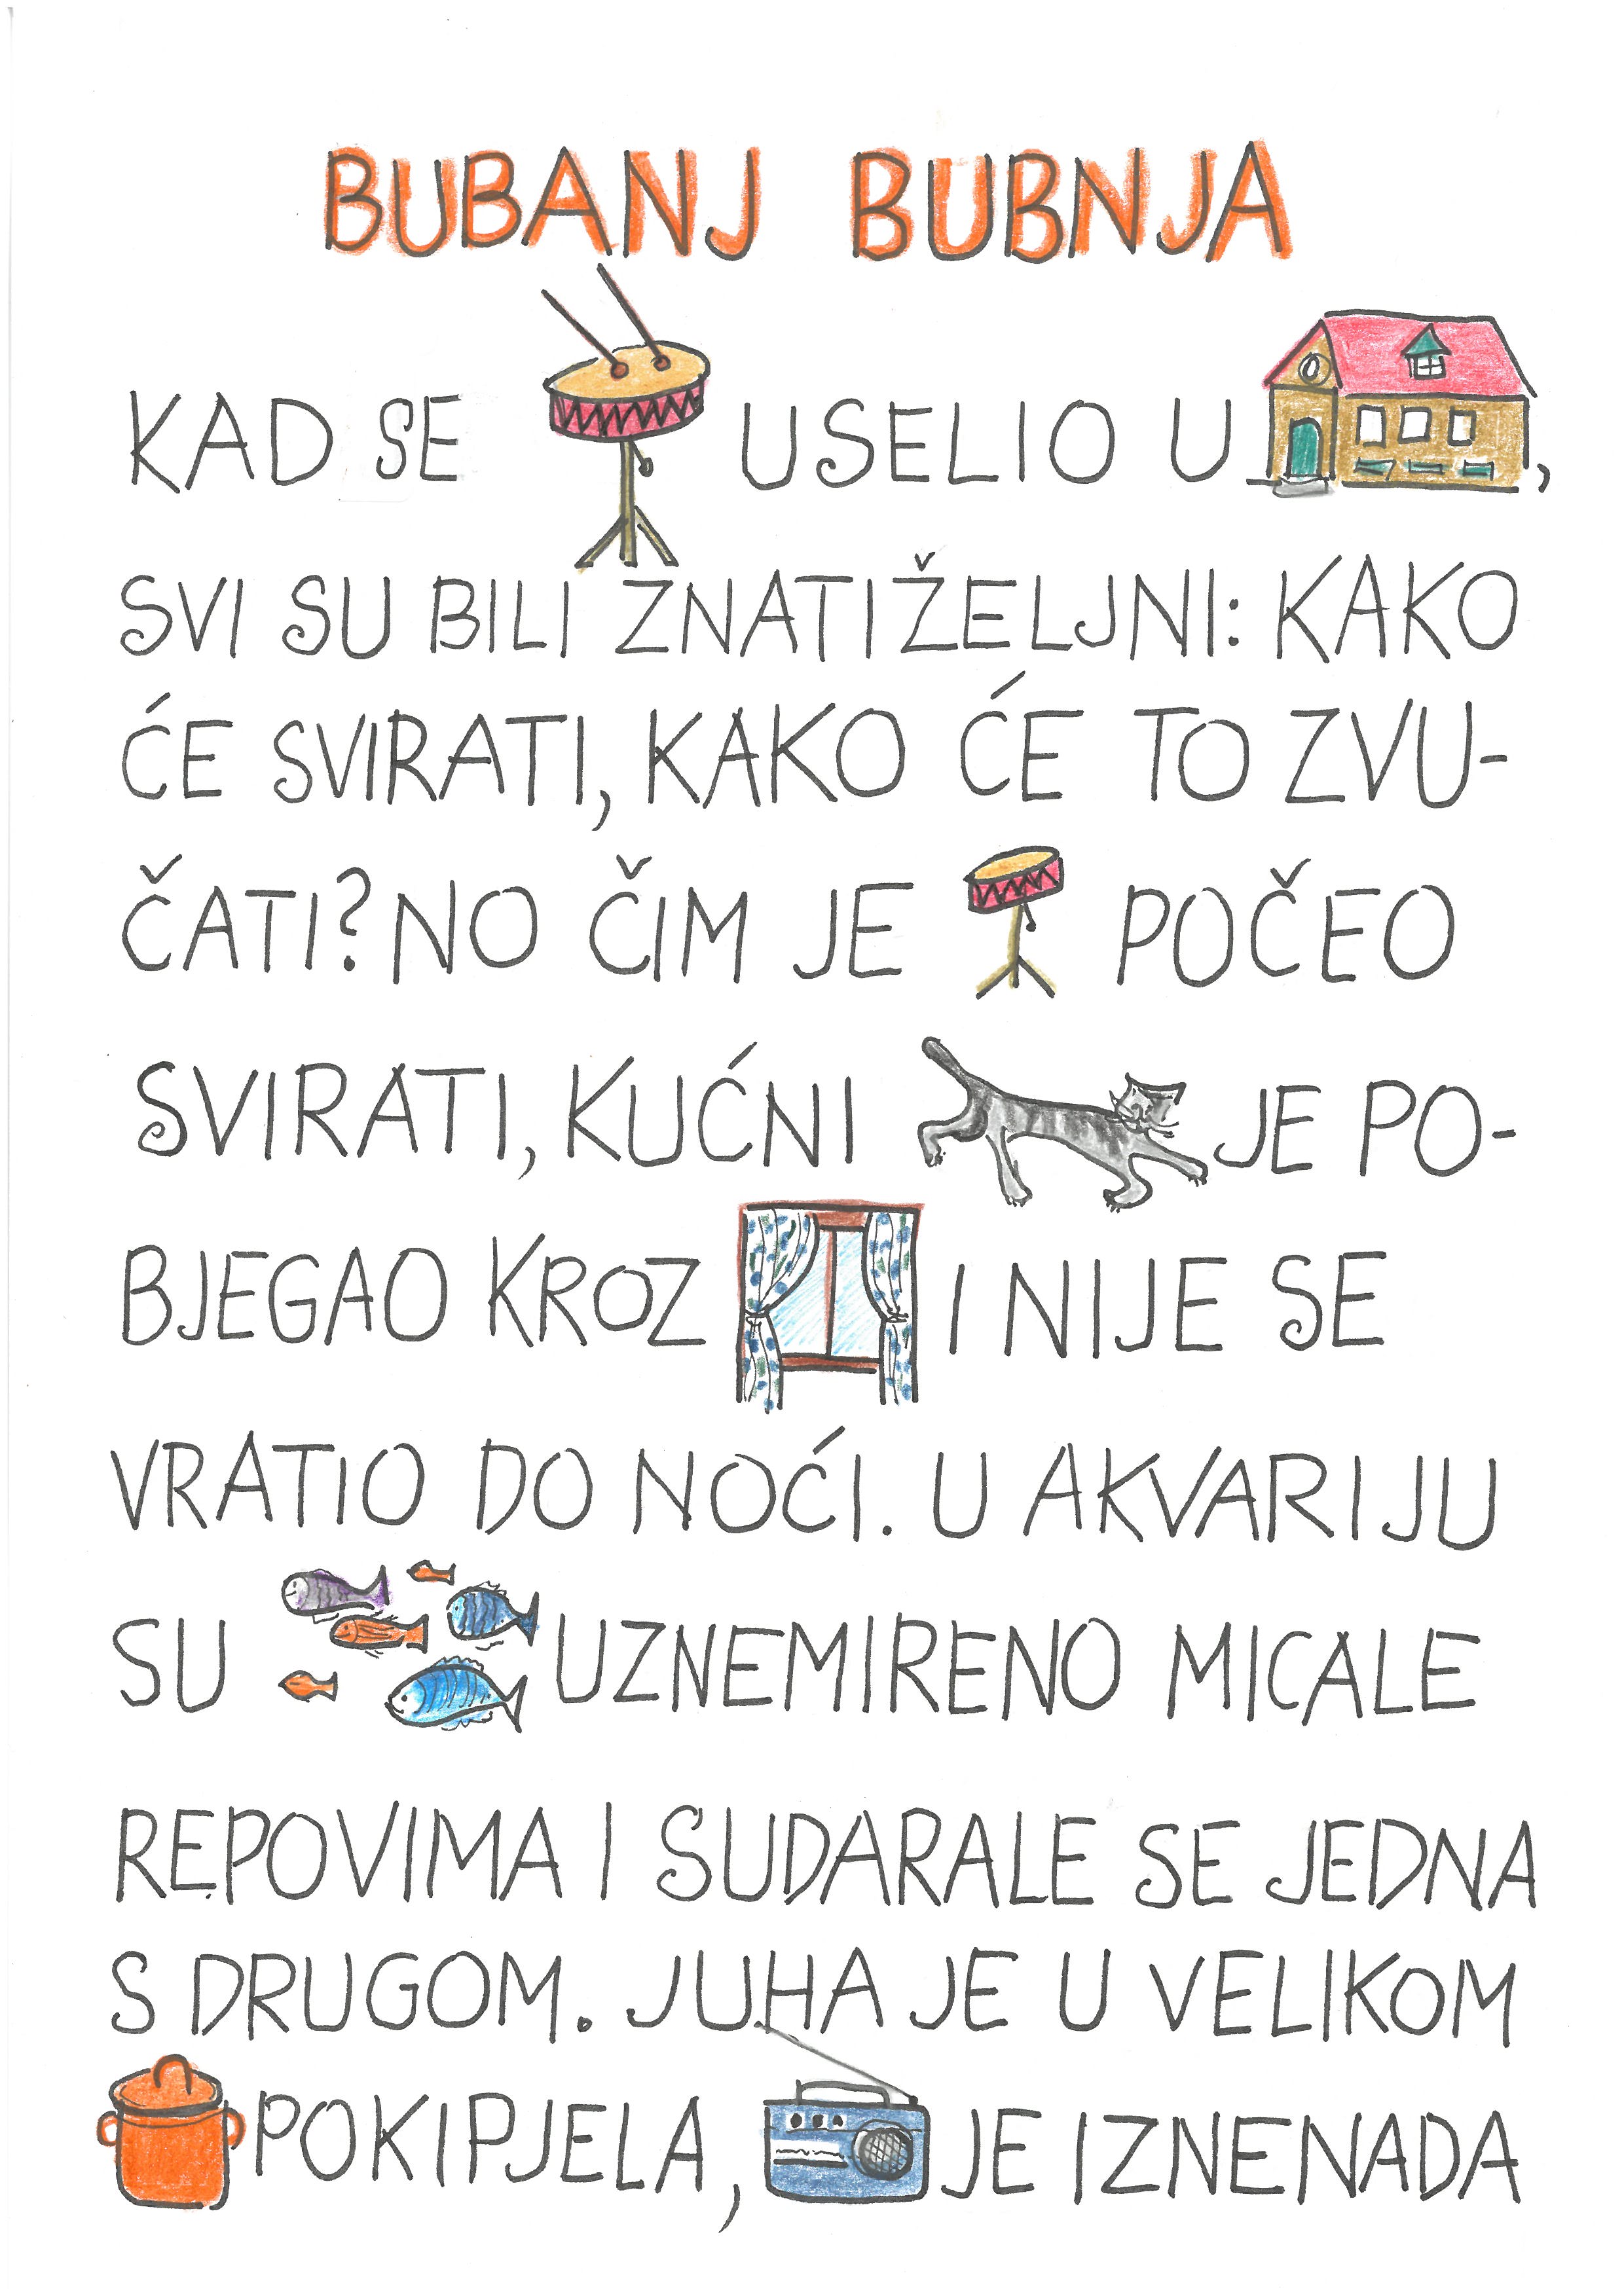 BUBANJ BUBNJA
KAD SE USELIO U,
SVI SU BILI ZNATIŽELJNI: KAKO
ĆE SVIRATI, KAKO ĆE TO ZVU-
ČATI? NO ČIM JE POČEO
SVIRATI, KUĆNI JE PO-
BJEGAO KROZ I NIJE SE
VRATIO DO NOĆI. U AKVARIJU
SU UZNEMIRENO MICALE
REPOVIMA I SUDARALE SE JEDNA
S DRUGOM. JUHA JE U VELIKOM
POKIPJELA, JE IZNENADA